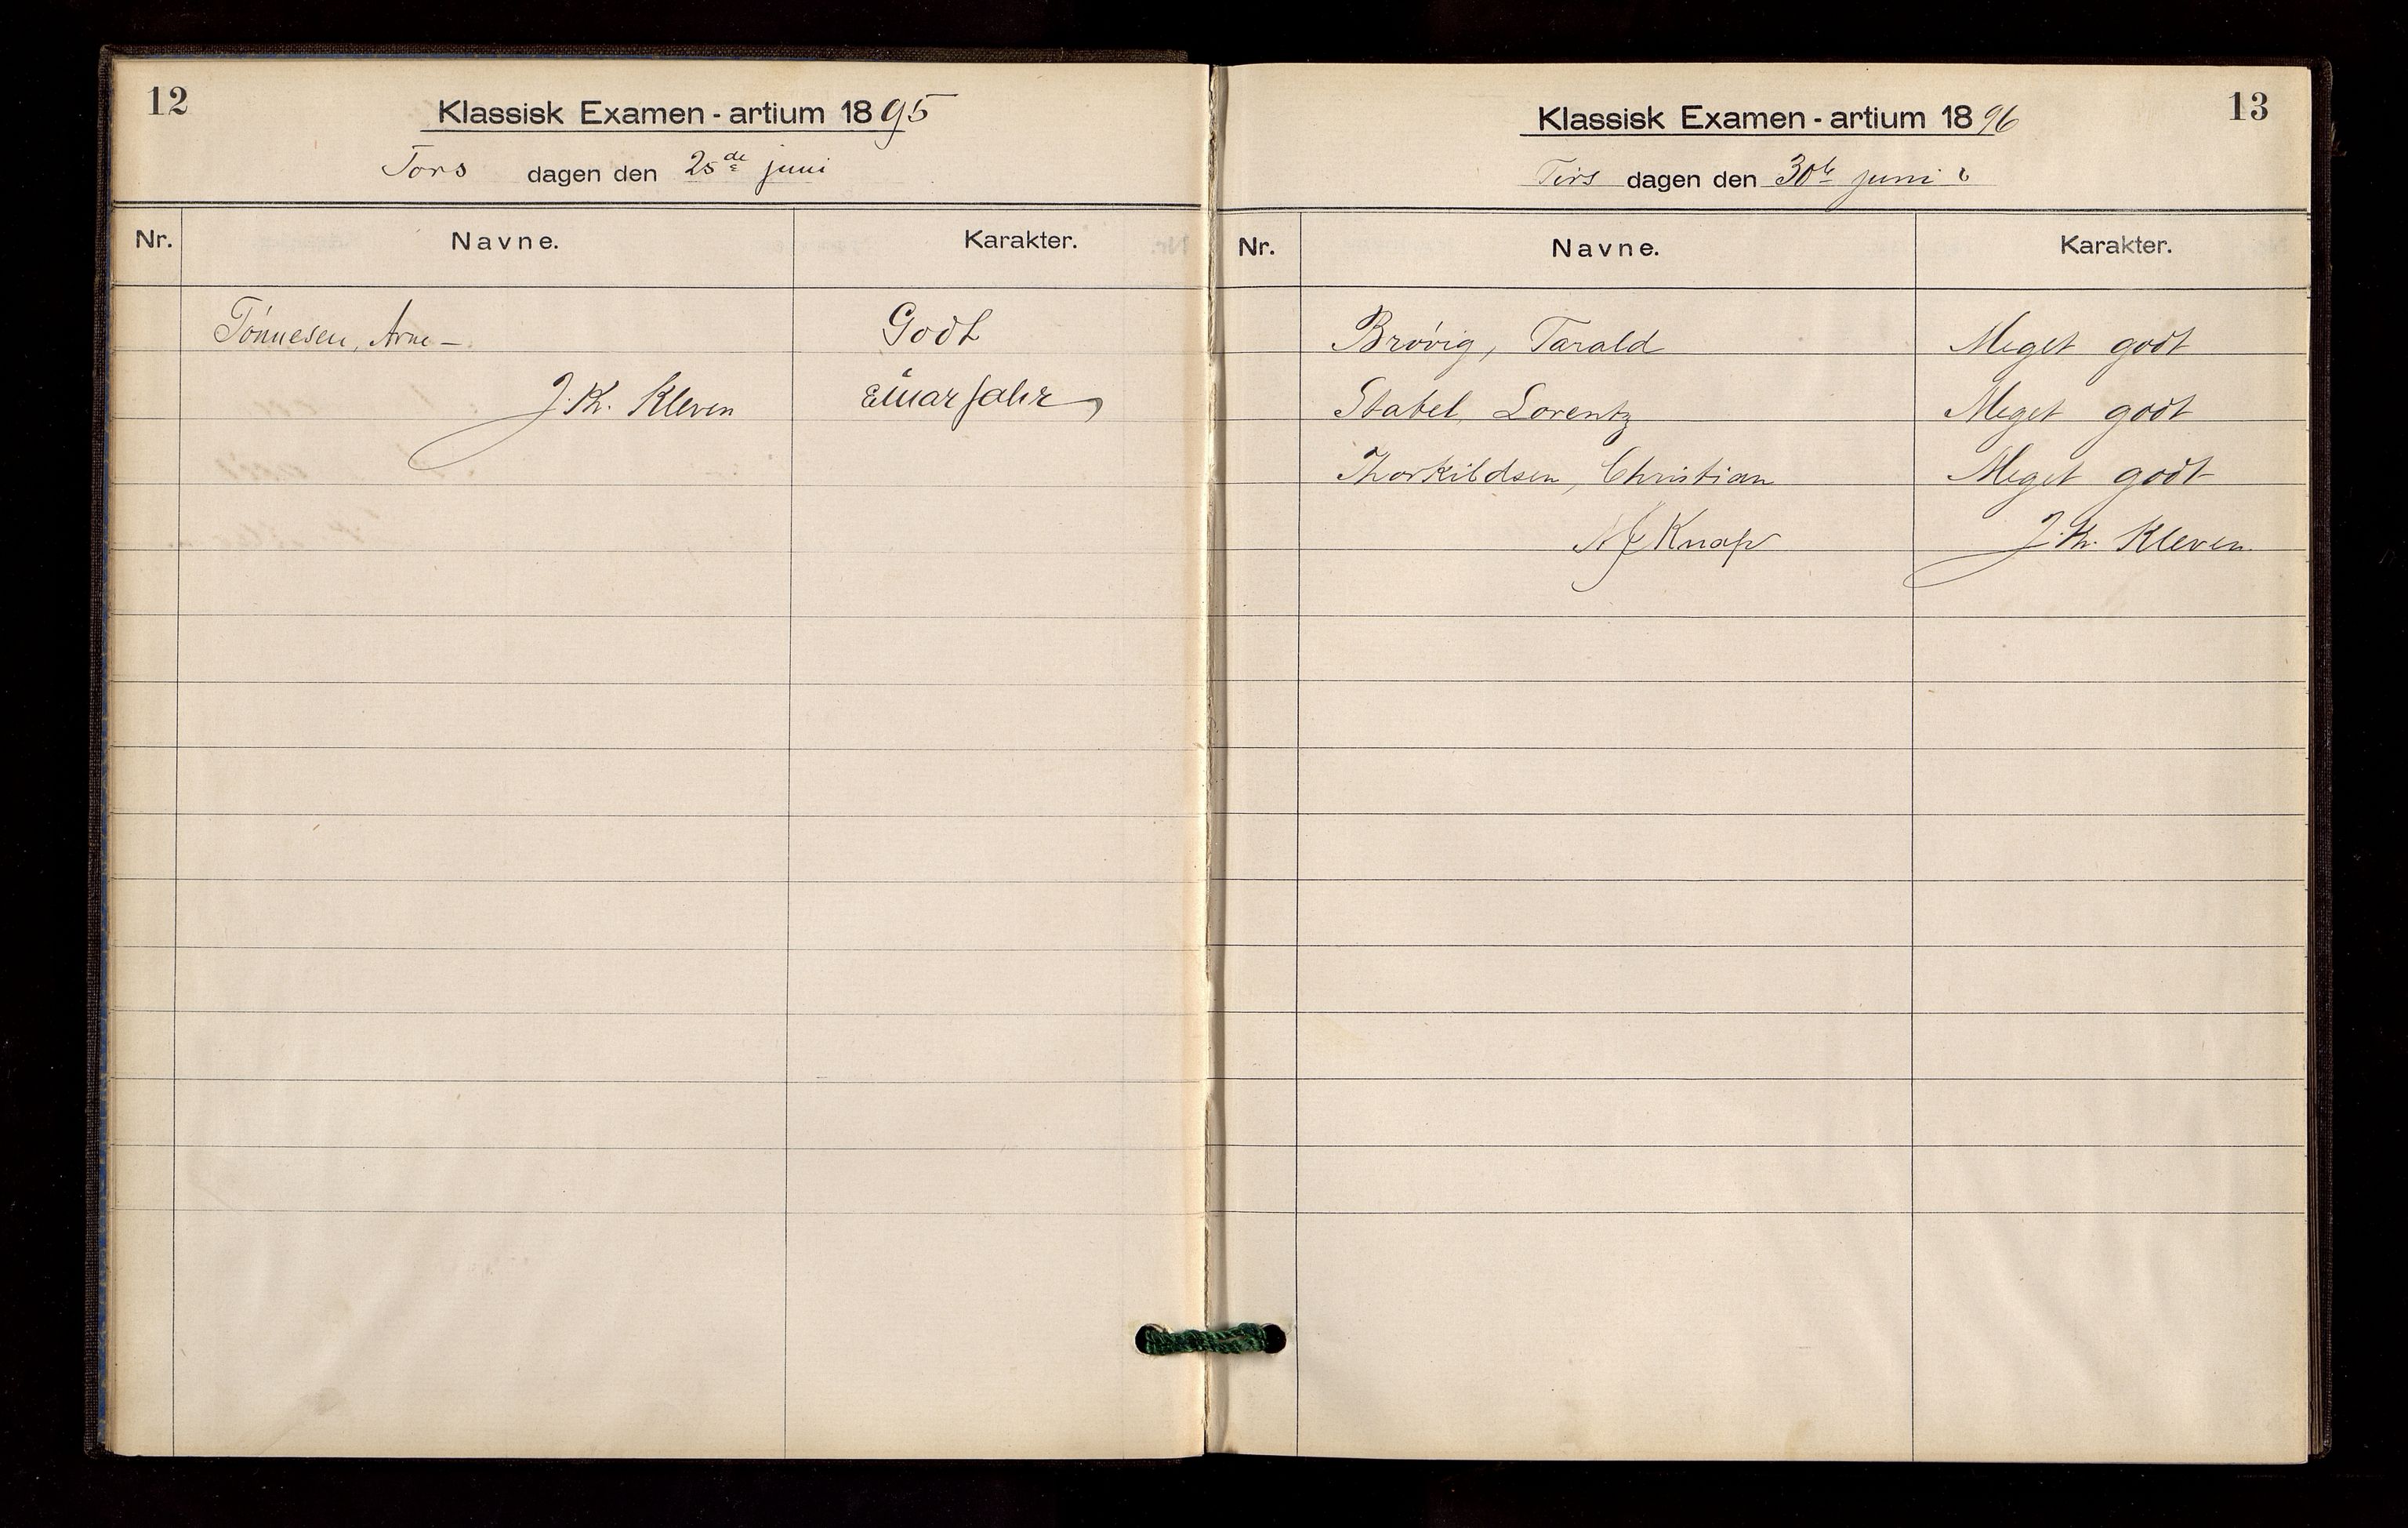 12
Klassisk Examen - artium 1895
Tors dagen den 25de juni
Nr. Navne. Karakter.
Tönnesen, Arne — Godt
J. Kr. Kleven Einar Jahr
13
Klassisk Examen - artium 1896
Tirs dagen den 30te juni
Nr. Navne. Karakter.
Brøvig, Tarald Meget godt
Stabel, Lorentz Meget godt
Thorkildsen, Christian Meget godt
Knap J. Kr. Kleven